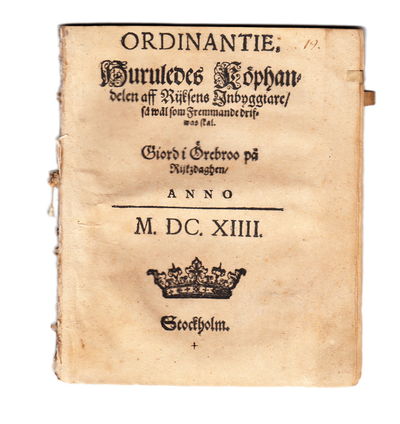 ORDINANTIE,
19.
Huruledes Köphan-
delen aff Rijksens Inbyggiare/
så wäl som Fremmande drif-
was skal.
Giord i Örebroo på
Rijkzdaghen/
ANNO
M. DC. XIIII.
Stockholm.